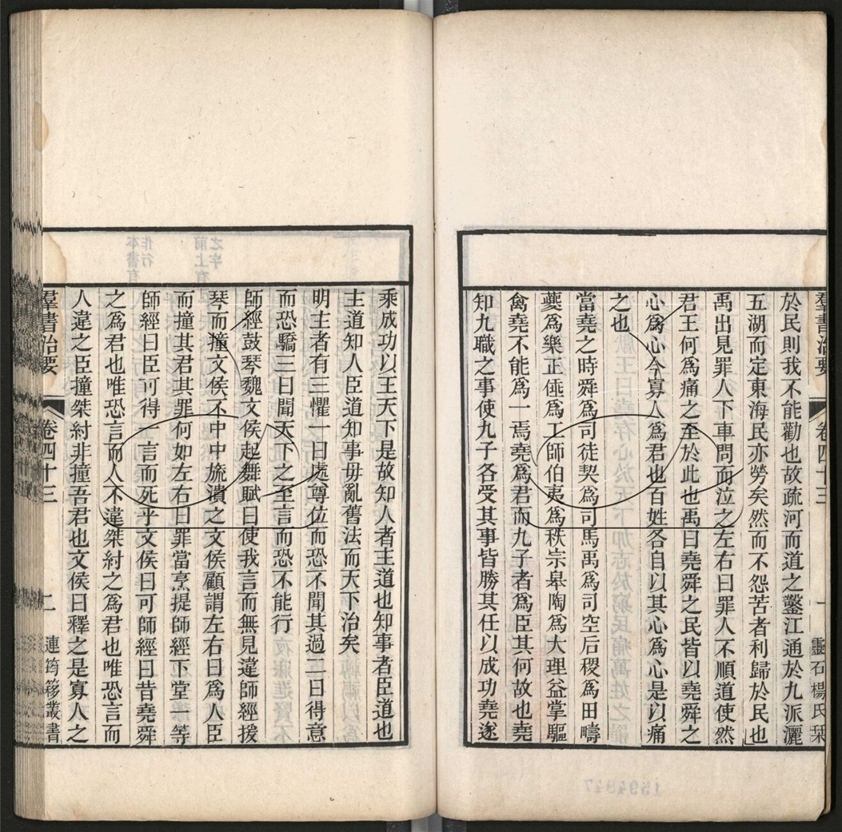 羣書治要 卷四十三 一 靈石楊氏栞
於民則我不能勸也故疏河而道之鑿江通於九派灑
五湖而定東海民亦勞矣然而不怨苦者利歸於民也
禹出見罪人下車問而泣之左右曰罪人不順道使然
君王何爲痛之至於此也禹曰堯舜之民皆以堯舜之
心爲心今寡人爲君也百姓各自以其心爲心是以痛
之也
當堯之時舜爲司徒契爲司馬禹爲司空后稷爲田疇
夔爲樂正倕爲工師伯夷爲秩宗皋陶爲大理益掌驅
禽堯不能爲一焉堯爲君而九子者爲臣其何故也堯
知九職之事使九子各受其事皆勝其任以成功堯遂
乘成功以王天下是故知人者主道也知事者臣道也
主道知人臣道知事毋亂舊法而天下治矣
明主者有三懼一曰處尊位而恐不聞其過二曰得意
而恐驕三曰聞天下之至言而恐不能行
師經鼓琴魏文侯起舞賦曰使我言而無見違師經援
琴而撞文侯不中中旒潰之文侯顧謂左右曰爲人臣
而撞其君其罪何如左右曰罪當烹提師經下堂一等
師經曰臣可得一言而死乎文侯曰可師經曰昔堯舜
之爲君也唯恐言而人不違桀紂之爲君也唯恐言而
人違之臣撞桀紂非撞吾君也文侯曰釋之是寡人之
羣書治要 卷四十三 二 連筠簃叢書